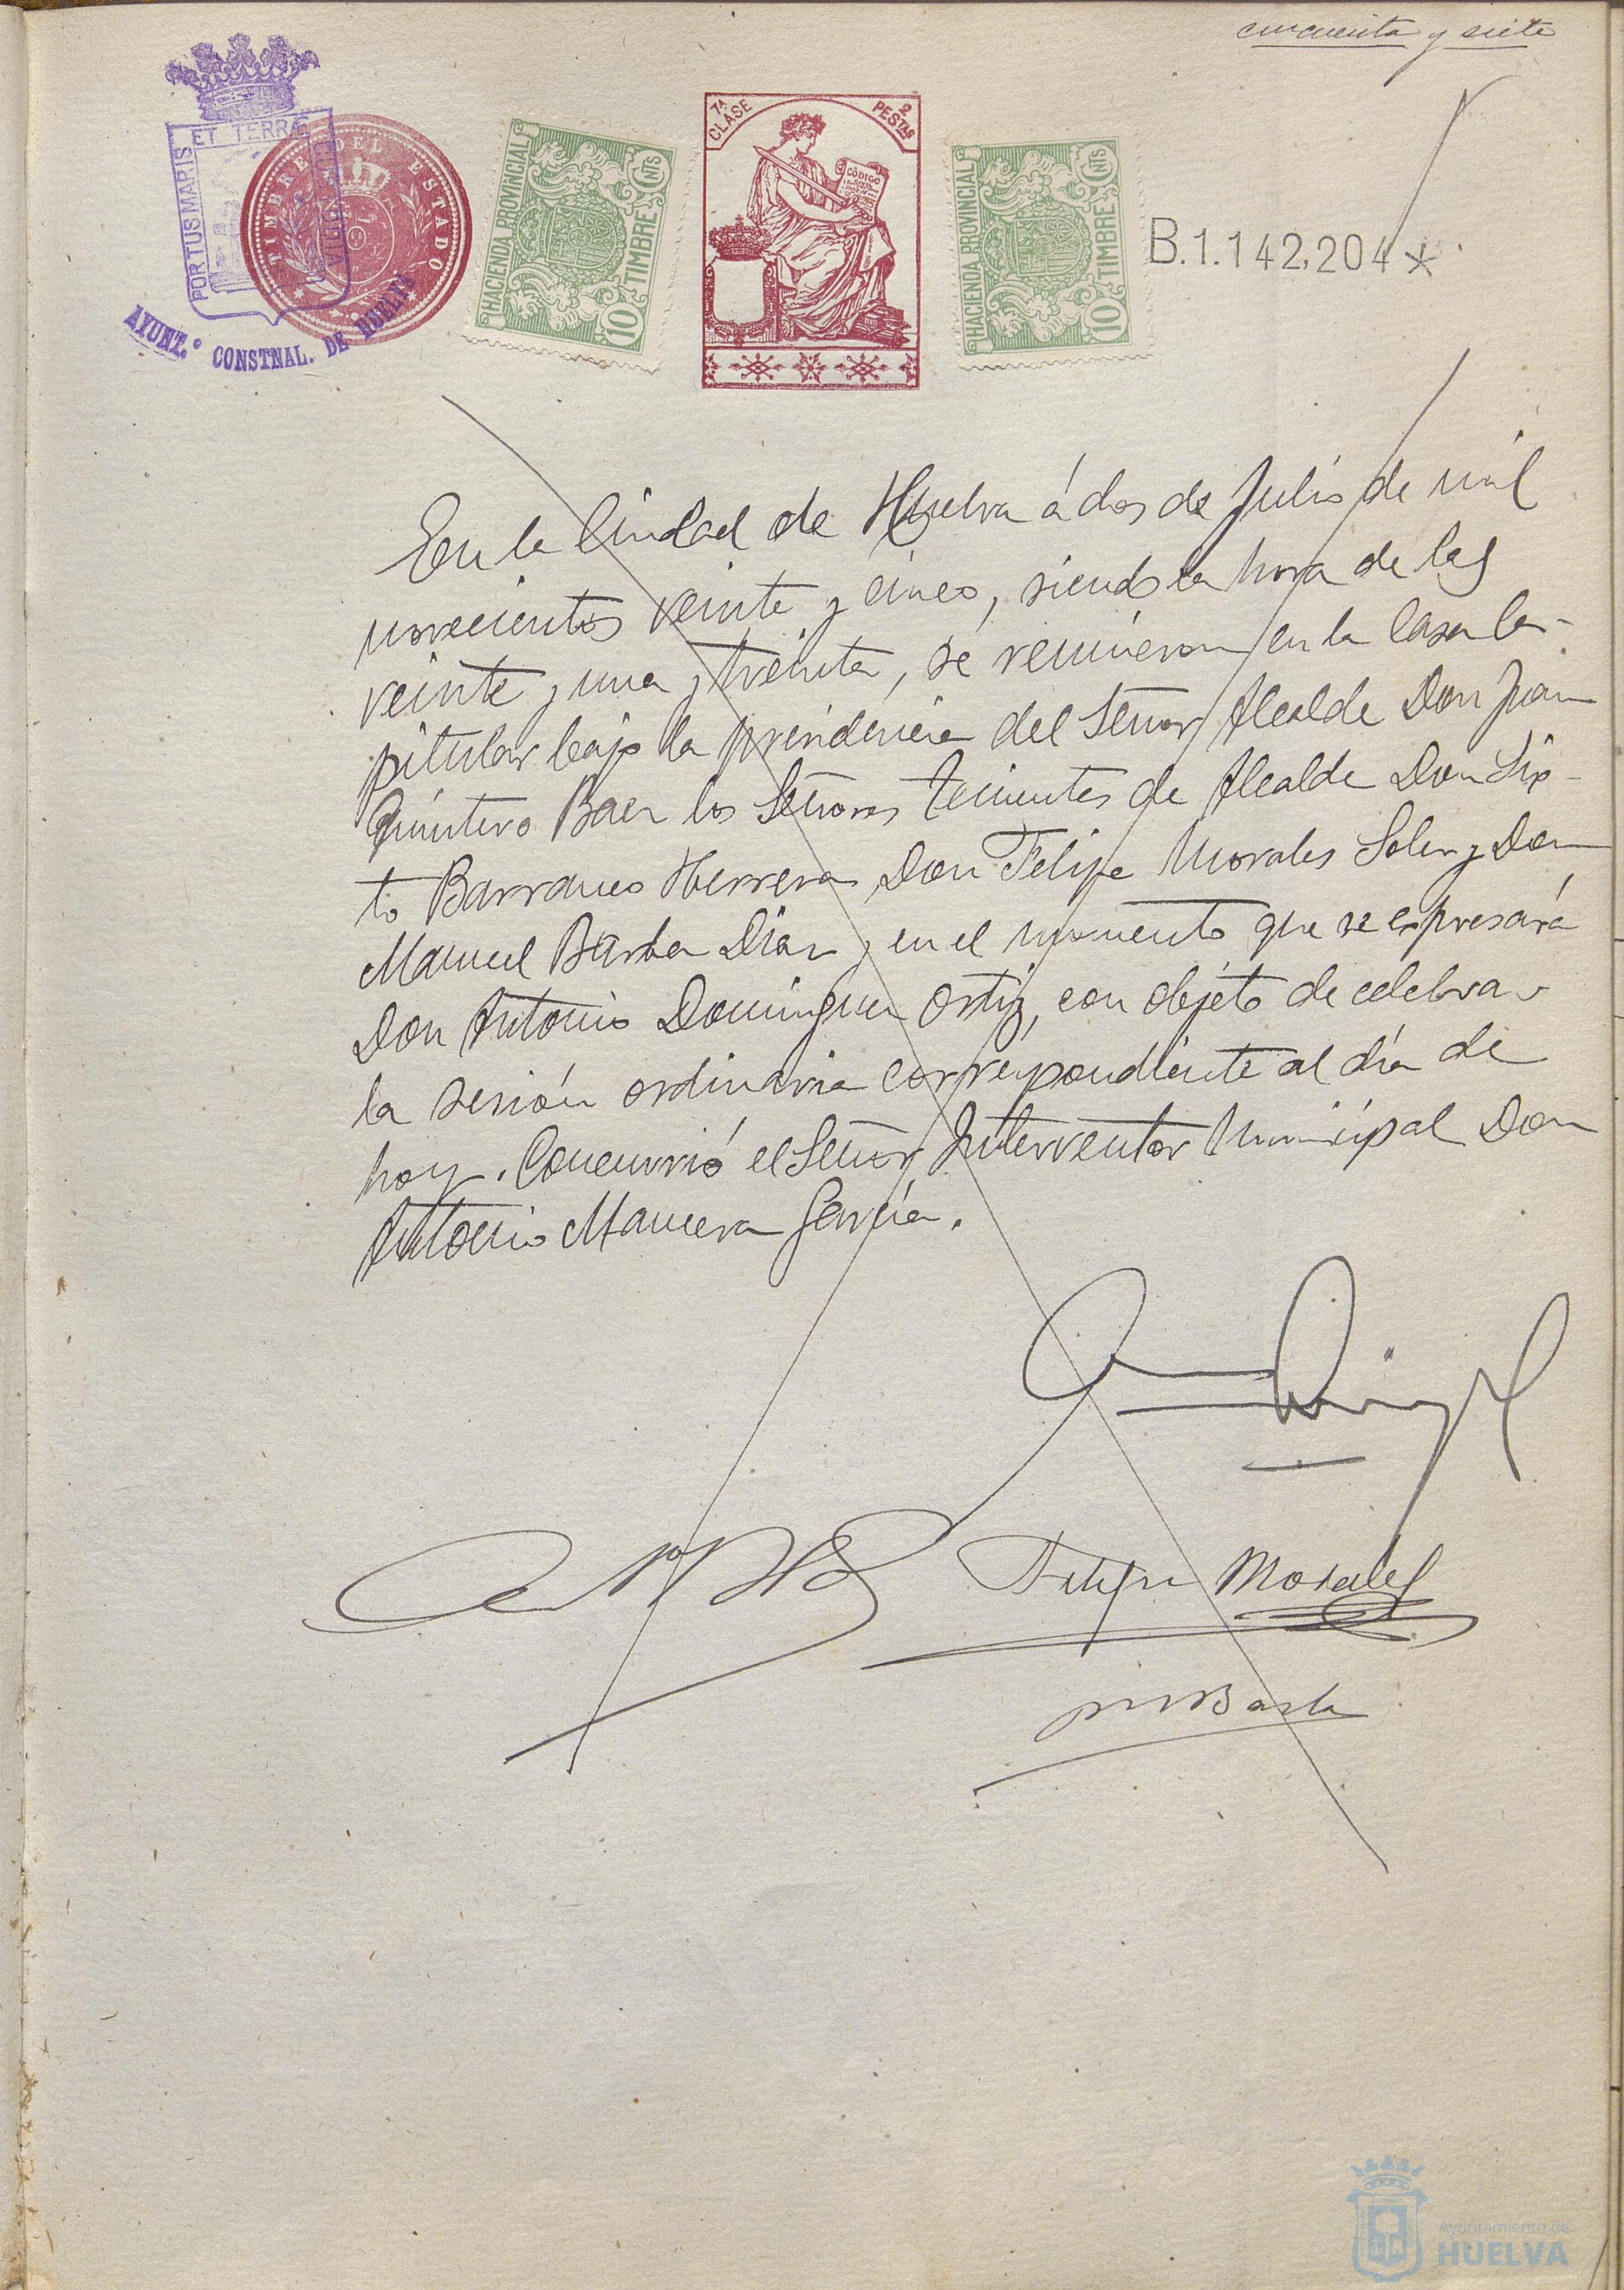 cincuenta y siete
PORTUS MARIS ET TERRÆ CUSTODIA
AYUNT.º CONSTNAL. DE HUELVA
TIMBRE DEL ESTADO
HACIENDA PROVINCIAL
10 CNTS
TIMBRE
7ª CLASE
2 PESTAS
CÓDIGO
HACIENDA PROVINCIAL
10 CNTS
TIMBRE
B.1.142,204*
En la Ciudad de Huelva á dos de Julio de mil
novecientos veinte y cinco, siendo la hora de las
veinte y una y treinta, se reunieron en la Casa Ca-
pitular bajo la presidencia del Señor Alcalde Don Juan
Quintero Baez los Señores Tenientes de Alcalde Don Six-
to Barranco Herrera Don Felipe Morales Soler y Don
Manuel Barba Diaz y en el momento que se expresará
Don Antonio Dominguez Ortiz, con objeto de celebrar
la sesión ordinaria correspondiente al día de
hoy. Concurrió el Señor Interventor Municipal Don
Antonio Mancera García.
Felipe Morales
M Barba
Ayuntamiento de
HUELVA